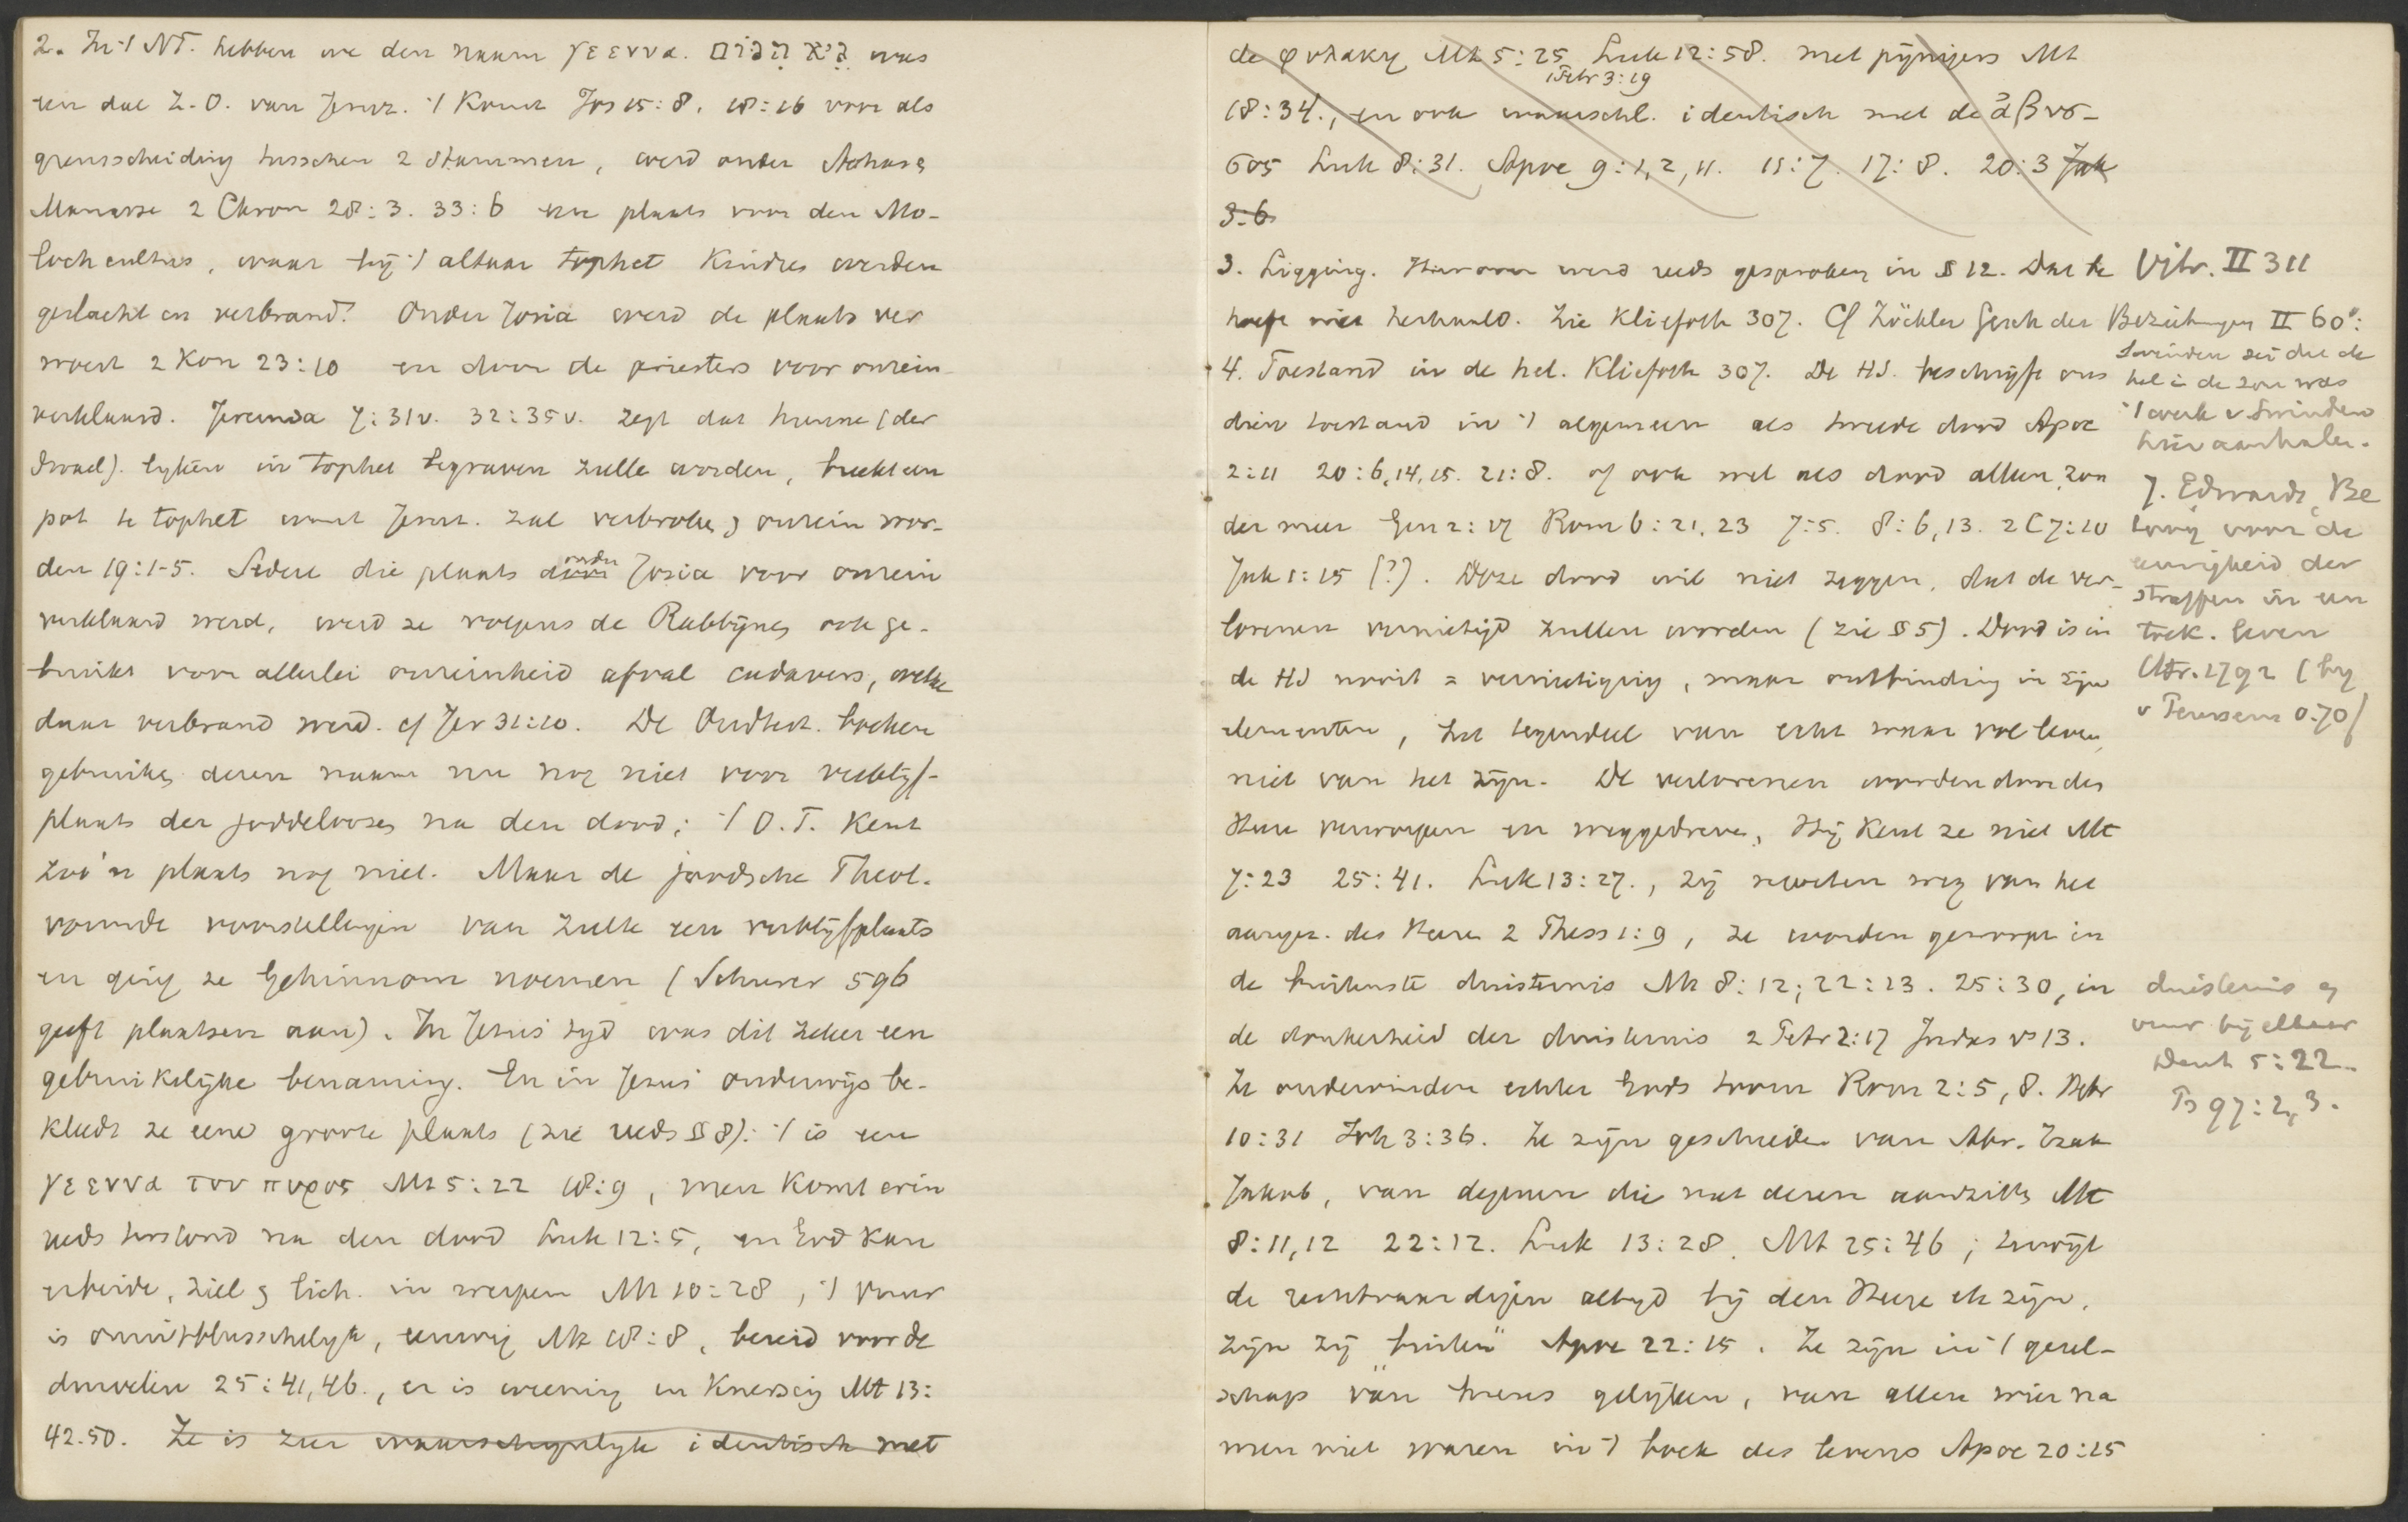 2. In 't NT. hebben we den naam γεεννα. גיא הנום was
een dal Z.O. van Jeruz. 't komt Jos 15:8. 18:16 voor als
grensscheiding tusschen 2 stammen, werd onder Achas &
Manasse 2 Chron 28:3. 33:6 een plaats voor den Mo-
lochcultus, waar bij 't altaar tophet kindres werden
geslacht en verbrand. Onder Josia werd de plaats ver
woest 2 Kon 23:10 en door de priesters voor onrein
verklaard. Jeremia 7:31v. 32:35v. zegt dat hunne (der
Israel). lyken in tophet begraven zulle worden,
pot te tophet want Jeruz. zal verbroke & onrein wor-
den 19:1-5. Sedert die plaats onder Josia voor onrein
verklaard werd, werd ze volgens de Rabbijnen ook ge-
bruikt voor allerlei onreinheid afval cadavers, welke
daar verbrand werd. cf Jer 31:40. De Oudtest. boeken
gebruiken deren naam nu nog niet voor verblijf-
plaats der goddeloozen na den dood; 't O.T. kent
zoo'n plaats nog niet. Maar de joodsche Theol.
vormde voorstellingen van zulk een verblijfplaats
en ging ze Gehinnom noemen (Schurer 596
geeft plaatsen aan). In Jezus' tyd was dit zeker een
gebruikelijke benaming. En in Jezus' onderwijs be-
kleedt ze eene groote plaats (zie reeds § 8): 't is een
γεεννα του πυρος Mt 5:22 18:9, men komt erin
reeds terstond na den dood Luk 12:5, en God kan
erbeide, ziel & lich. in werpen Mt 10:28, 't vuur
is onuitblusschelyk, eeuwig Mt 18:8, bereid voor de
duivelen 25:41,46., er is weening en knersing Mt 13:
42.50. Ze is zeer waarschynlyk identisch met
de φυλακη Mt 5:25 Luk 12:58. met pynigers Mt
1 Petr 3:19
18:34., en ook waarschl. identisch met de ἀβυσ-
σος Luk 8:31. Apoc 9:1,2,11. 11:7. 17:8. 20:3 Jak
3:6
3. Ligging. Hierover werd reeds gesproken in § 12. Dat te
hoeft niet herhaald. Zie Kliefoth 307. Cf Zöckler Gesch der
4. Toestand in de hel. Kliefoth 307. De HS. beschrijft ons
dien toestand in 't algemeen als tweede dood Apoc
2:11 20:6,14,15. 21:8. of ook wel als dood alleen, zon
der meer Gen 2:17 Rom 6:21,23 7:5. 8:6,13. 2C 7:10
Jak 1:15 (?). Deze dood wil niet zeggen, dat de ver-
lorenen vernietigd zullen worden (zie § 5). Dood is in
de HS nooit = vernietiging, maar ontbinding in zijn
elementen, het tegendeel van echt waar vol leven,
niet van het zijn. De verlorenen worden door des
Heere verworpen en weggedreven, Hij kent ze niet Mt
7:23 25:41. Luk 13:27., zij moeten weg van het
aangez. des Heere 2 Thess 1:9, ze worden geworpe in
de buitenste duisternis Mt 8:12; 22:13. 25:30, in
de donkerheid der duisternis 2 Petr 2:17 Judas vs 13.
Ze ondervinden echter Gods toorn Rom 2:5,8. Hebr
10:31 Joh 3:36. Ze zijn gescheiden van Abr. Izak
Jakob, van degenen die met deren aanzitten Mt
8:11,12 22:12. Luk 13:28. Mt 25:46; terwijl
de rechtvaardigen altyd bij den Heere etc zijn,
zijn zij "buiten" Apoc 22:15. Ze zijn in 't gezel-
schap van huns gelijken, van allen wier na
men niet waren in 't boek des levens Apoc 20:15
Vitr. II 311
Bezielungen II 60:
Swinden zei dat de
hel in de zon was
't werk v Swinden
hier aanhalen.
J. Edwards, Be
toog voor de
eeuwigheid der
straffen in een
toek. leven
Utr. 1792 (by
v Terveen 0.70)
duisternis &
vuur bij elkaar
Deut 5:22.
Ps 97:2,3.